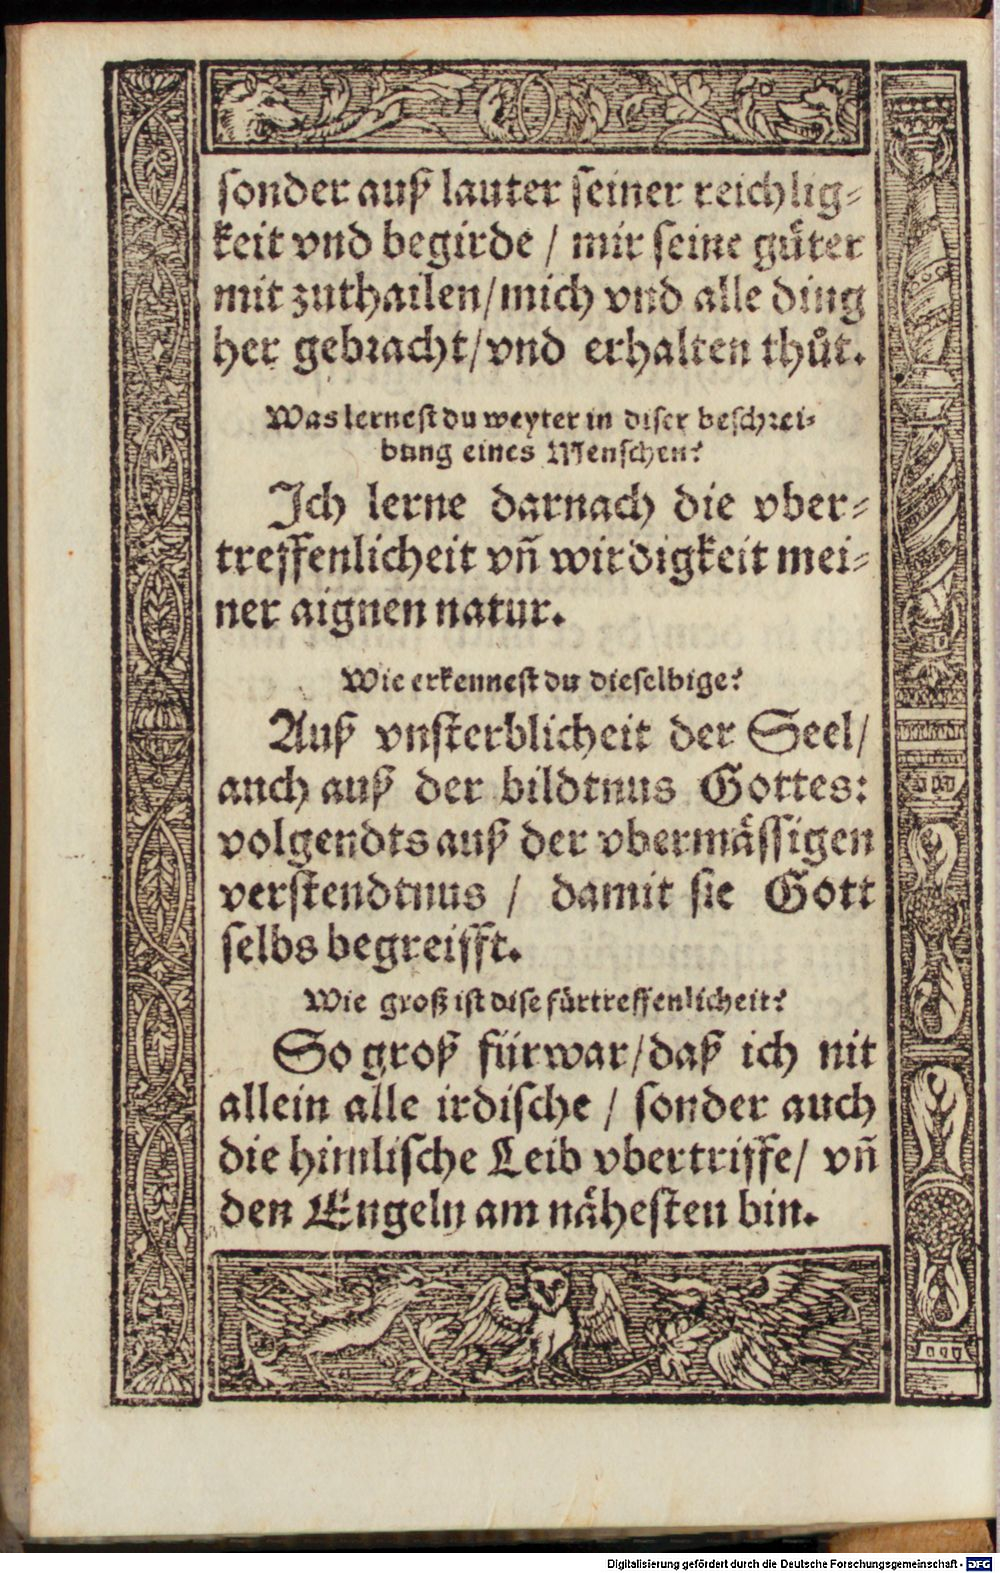 sonder auß lauter seiner reichlig-
keit vnd begirde / mir seine gůter
mit zuthailen/mich vnd alle ding
her gebracht/vnd erhalten thůt.
Was lernest du weyter in diser beschrei-
bung eines Menschen?
Ich lerne darnach die vber-
treffenlicheit vñ wirdigkeit mei-
ner aignen natur.
Wie erkennest du dieselbige?
Auß vnsterblicheit der Seel/
auch auß der bildtnus Gottes:
volgendts auß der vbermässigen
verstendtnus / damit sie Gott
selbs begreifft.
Wie groß ist dise fürtreffenlicheit?
So groß fürwar/daß ich nit
allein alle irdische / sonder auch
die himlische Leib vbertriffe/ vñ
den Engeln am nähesten bin.
Digitalisierung gefördert durch die Deutsche Forschungsgemeinschaft - DFG